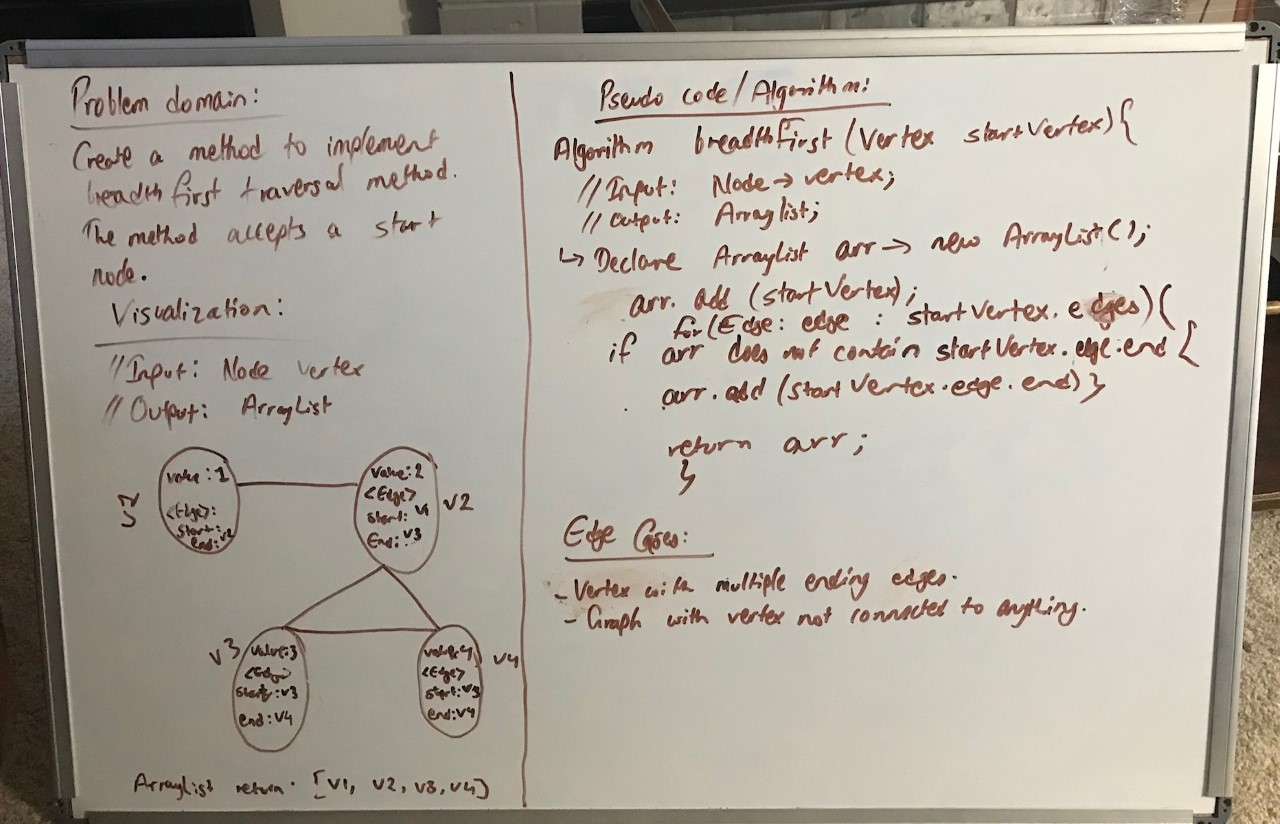 Problem domain:
Create a method to implement
breadth first traversal method.
The method accepts a start
node.
Visualization:
//Input: Node vertex
// Output: ArrayList
value: 1
<Edge>:
Start:
end: v2
value: 2
<Edge>
Start: v1
End: v3
v2
v3
value: 3
<Edge>
Start: v3
end: v4
value: 4
<Edge>
Start: v3
end: v4
v4
ArrayList return: [v1, v2, v3, v4]
Pseudo code/Algorithm:
Algorithm breadthfirst (Vertex startVertex) {
//Input: Node → vertex;
//Output: Arraylist;
↳ Declare Arraylist arr → new ArrayList();
arr. add (startVertex);
for (Edge: edge : startVertex. edges) {
if arr does not contain startVertex. edge. end {
arr. add (startVertex. edge. end) }
return arr;
}
Edge Cases:
- Vertex with multiple ending edges.
- Graph with vertex not connected to anything.